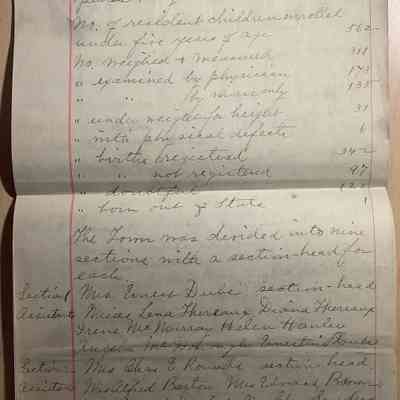 No. of resident children enrolled
under five years of age 562
No. weighed & measured 318
" examined by physician 173
" " by nurse only 135
" under weight for height 31
" with physical defects 6
" births registered 342
" " not registered 97
" doubtful 122
" born out of State 1
The Town was divided into nine
sections with a section-head for
each.
Section 1 Mrs Ernest Dube section-head
Assistants Misses Lena Thereaux Diana Thereaux
Irene McMurray Helen Hanley
Section Mrs Chas E section-head
Assistants Mrs Alfred Barton Mrs Edward